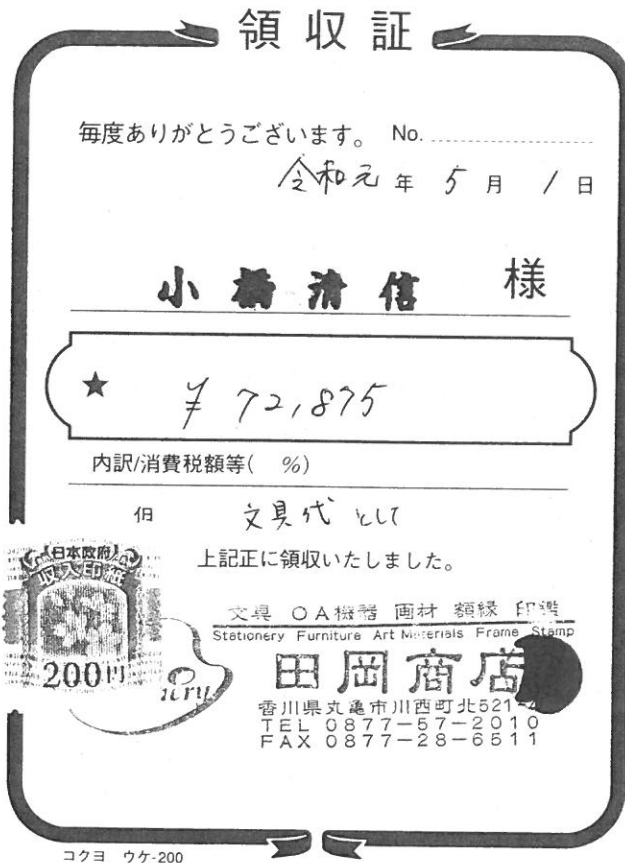 領収証
毎度ありがとうございます。 No.
令和元年 5月 1日
小橋清信 様
★ ¥72,875
内訳/消費税額等( %)
但 文具代として
上記正に領収いたしました。
日本政府
収入印紙
200円
文具 OA機器 画材 額縁 印鑑
Stationery Furniture Art Materials Frame Stamp
田岡商店
香川県丸亀市川西町北521-
TEL 0877-57-2010
FAX 0877-28-6511
コクヨ ウケ-200